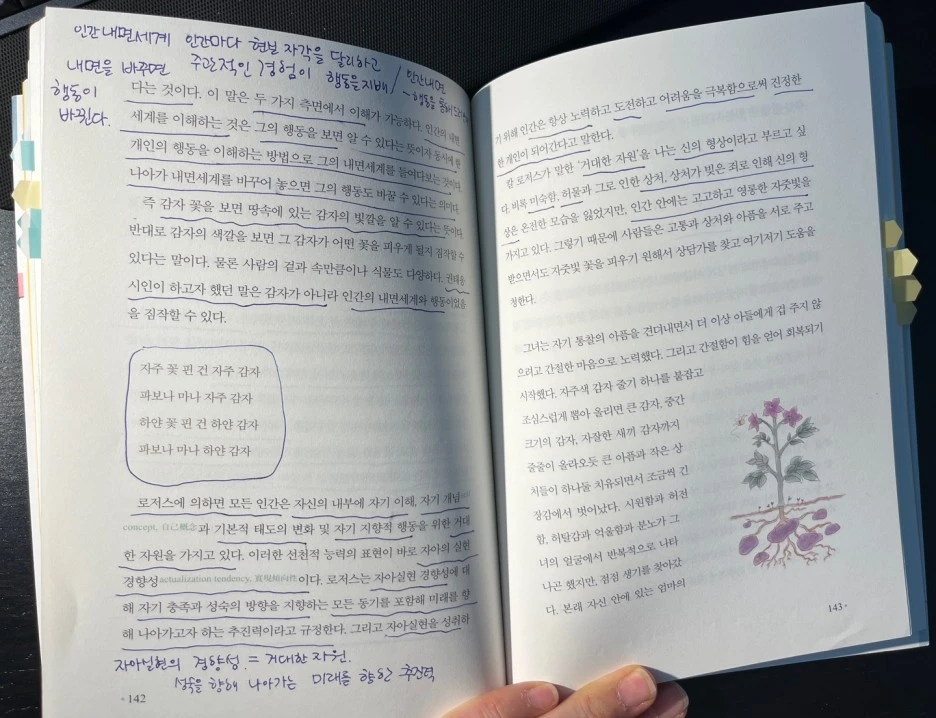 인간내면세계 인간마다 현실 자각을 달리하고
내면을 바꾸면 주관적인 경험이 행동을지배 / 인간내면
행동이
바뀐다.
다는 것이다. 이 말은 두 가지 측면에서 이해가 가능하다. 인간의 내면
세계를 이해하는 것은 그의 행동을 보면 알 수 있다는 뜻이자 동시에 한
개인의 행동을 이해하는 방법으로 그의 내면세계를 들여다보는 것이다.
나아가 내면세계를 바꾸어 놓으면 그의 행동도 바꿀 수 있다는 의미다.
즉 감자 꽃을 보면 땅속에 있는 감자의 빛깔을 알 수 있다는 뜻이다.
반대로 감자의 색깔을 보면 그 감자가 어떤 꽃을 피우게 될지 짐작할 수
있다는 말이다. 물론 사람의 겉과 속만큼이나 식물도 다양하다. 권태응
시인이 하고자 했던 말은 감자가 아니라 인간의 내면세계와 행동이었음
을 짐작할 수 있다.
자주 꽃 핀 건 자주 감자
파보나 마나 자주 감자
하얀 꽃 핀 건 하얀 감자
파보나 마나 하얀 감자
로저스에 의하면 모든 인간은 자신의 내부에 자기 이해, 자기 개념self
concept, 自己概念과 기본적 태도의 변화 및 자기 지향적 행동을 위한 거대
한 자원을 가지고 있다. 이러한 선천적 능력의 표현이 바로 자아의 실현
경향성actualization tendency, 實現傾向性이다. 로저스는 자아실현 경향성에 대
해 자기 충족과 성숙의 방향을 지향하는 모든 동기를 포함해 미래를 향
해 나아가고자 하는 추진력이라고 규정한다. 그리고 자아실현을 성취하
자아실현의 경향성 = 거대한 자원.
성숙을 향해 나아가는 미래를 향한 추진력
• 142
기 위해 인간은 항상 노력하고 도전하고 어려움을 극복함으로써 진정한
한 개인이 되어간다고 말한다.
칼 로저스가 말한 '거대한 자원'을 나는 신의 형상이라고 부르고 싶
다. 비록 미숙함, 허물과 그로 인한 상처, 상처가 빚은 죄로 인해 신의 형
상은 온전한 모습을 잃었지만, 인간 안에는 고고하고 영롱한 자줏빛을
가지고 있다. 그렇기 때문에 사람들은 고통과 상처와 아픔을 서로 주고
받으면서도 자줏빛 꽃을 피우기 위해서 상담가를 찾고 여기저기 도움을
청한다.
그녀는 자기 통찰의 아픔을 견뎌내면서 더 이상 아들에게 겁 주지 않
으려고 간절한 마음으로 노력했다. 그리고 간절함이 힘을 얻어 회복되기
시작했다. 자주색 감자 줄기 하나를 붙잡고
조심스럽게 뽑아 올리면 큰 감자, 중간
크기의 감자, 자잘한 새끼 감자까지
줄줄이 올라오듯 큰 아픔과 작은 상
처들이 하나둘 치유되면서 조금씩 긴
장감에서 벗어났다. 시원함과 허전
함, 허탈감과 억울함과 분노가 그
녀의 얼굴에서 반복적으로 나타
나곤 했지만, 점점 생기를 찾아갔
다. 본래 자신 안에 있는 엄마의
143 •